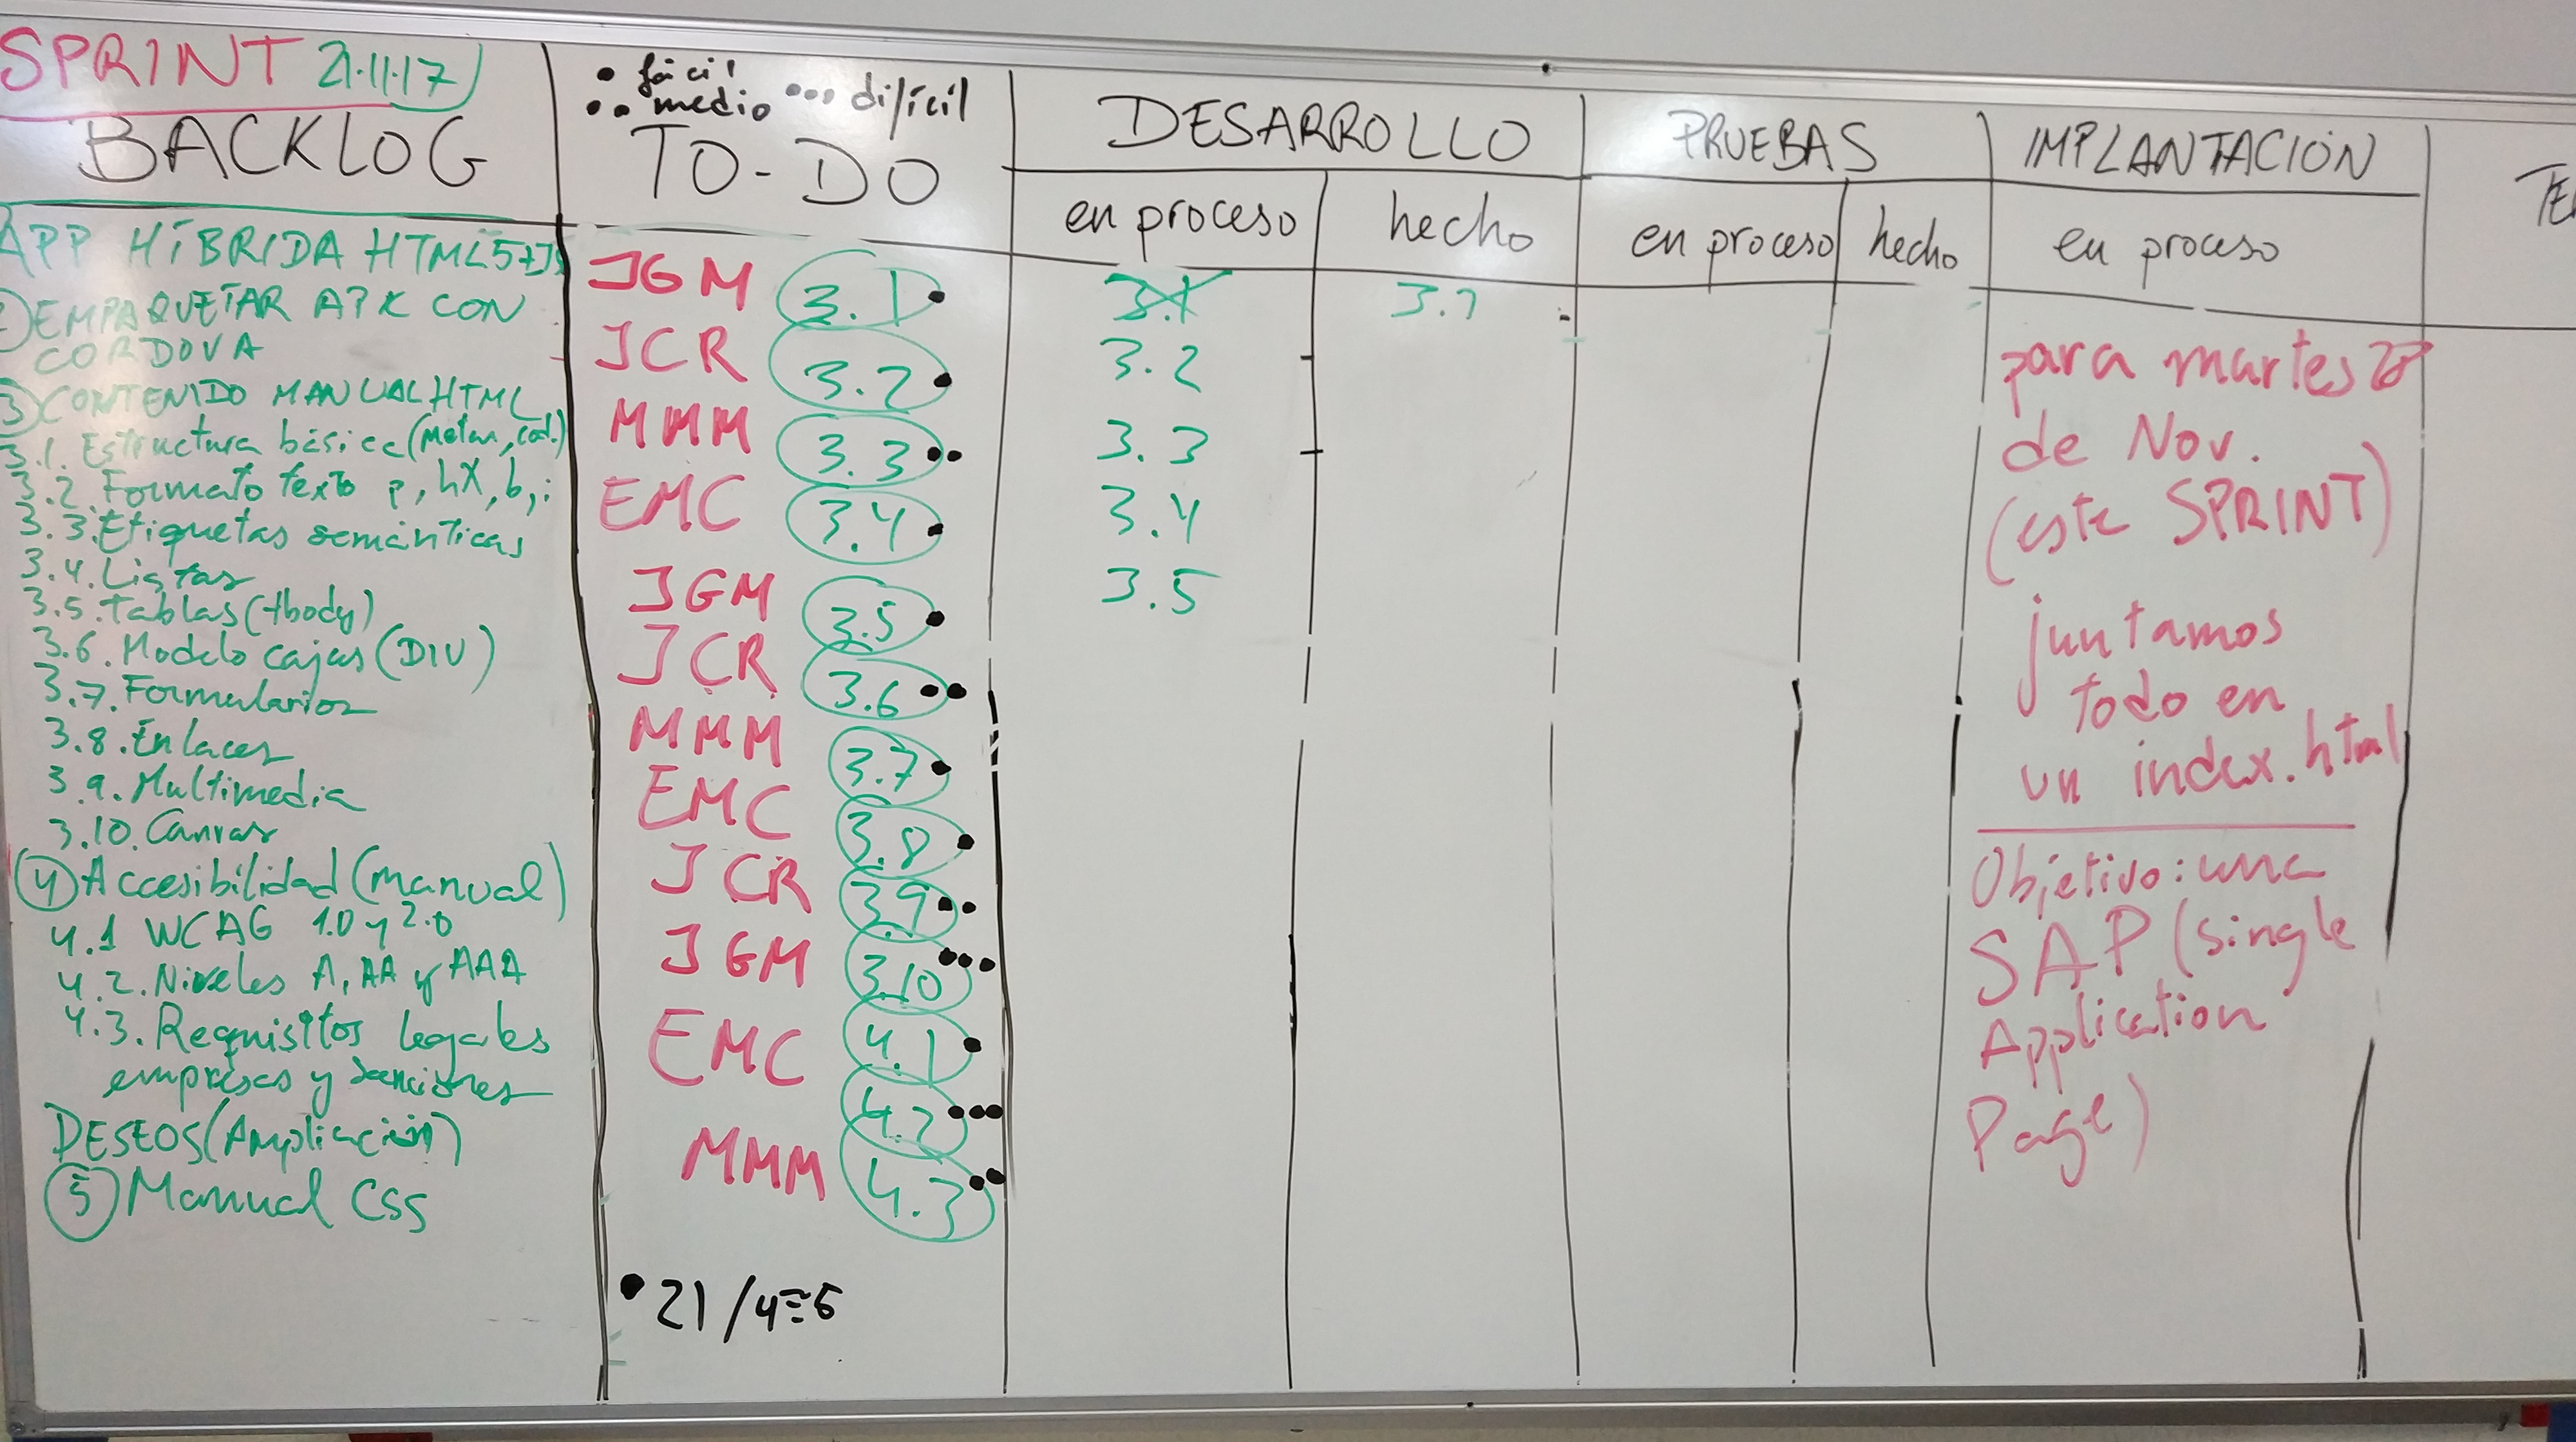 SPRINT 21.11.17
BACKLOG
APP HÍBRIDA HTML5+JS
2) EMPAQUETAR APK CON
CORDOVA
3) CONTENIDO MANUAL HTML
3.1. Estructura básica (metan, cod.)
3.2. Formato texto p, hX, b, i
3.3. Etiquetas semánticas
3.4. Listas
3.5. Tablas (tbody)
3.6. Modelo cajas (DIV)
3.7. Formularios
3.8. Enlaces
3.9. Multimedia
3.10. Canvas
4) Accesibilidad (manual)
4.1 WCAG 1.0 y 2.0
4.2. Niveles A, AA y AAA
4.3. Requisitos legales
empresas y sanciones
DESEOS (Ampliación)
5) Manual CSS
• fácil
•• medio ••• difícil
TO-DO
JGM 3.1 •
JCR 3.2 •
MMM 3.3 ••
EMC 3.4 •
JGM 3.5 •
JCR 3.6 ••
MMM 3.7 •
EMC 3.8 •
JCR 3.9 ••
JGM 3.10 •••
EMC 4.1 •
4.2 •••
MMM 4.3 ••
• 21/4≅5
DESARROLLO
en proceso
3.1
3.2
3.3
3.4
3.5
hecho
3.1
PRUEBAS
en proceso
hecho
IMPLANTACIÓN
en proceso
para martes 28
de Nov.
(este SPRINT)
juntamos
todo en
un index.html
Objetivo: una
SAP (single
Application
Page)
TE